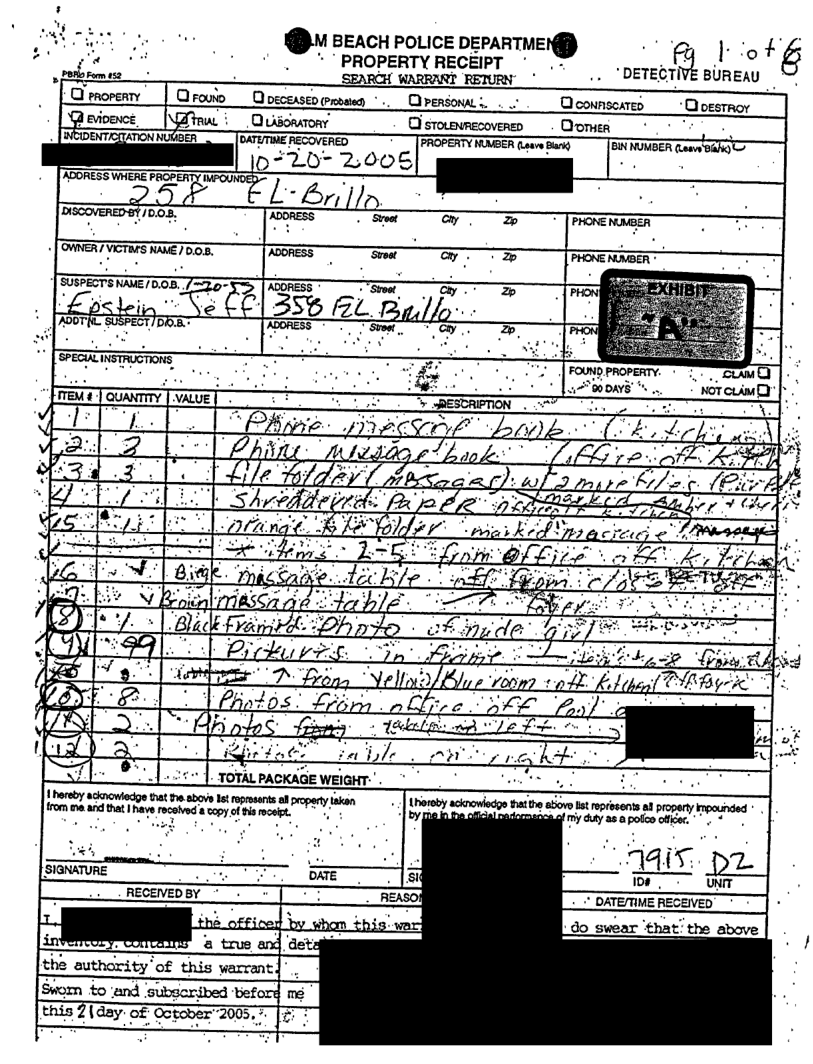 LM BEACH POLICE DEPARTMEN
PROPERTY RECEIPT
Pg 1 of 6
PBPD Form #52
SEARCH WARRANT RETURN
DETECTIVE BUREAU
PROPERTY FOUND DECEASED (Probated) PERSONAL CONFISCATED DESTROY
EVIDENCE TRIAL LABORATORY STOLEN/RECOVERED OTHER
INCIDENT/CITATION NUMBER DATE/TIME RECOVERED PROPERTY NUMBER (Leave Blank) BIN NUMBER (Leave Blank)
10-20-2005
ADDRESS WHERE PROPERTY IMPOUNDED
258 EL-Brillo
DISCOVERED BY / D.O.B. ADDRESS Street City Zip PHONE NUMBER
OWNER / VICTIM'S NAME / D.O.B. ADDRESS Street City Zip PHONE NUMBER
SUSPECT'S NAME / D.O.B. 1-20-53 ADDRESS Street City Zip PHON
Epstein Jeff 358 EL Brillo
EXHIBIT
"A"
ADDT'NL. SUSPECT / D.O.B. ADDRESS Street City Zip PHON
SPECIAL INSTRUCTIONS
FOUND PROPERTY CLAIM
90 DAYS NOT CLAIM
ITEM # QUANTITY VALUE DESCRIPTION
1 1 Phone message book (kitchen)
2 Phone message book (office off kitch
3 3 file folder (messages) w/ 2 more files
4 1 shreddered Paper office off kitchen
marked
5 1 orange file folder marked massage
* items 2-5 from office off kitchen
6 Biege massage table off from closet off
7 Brown massage table foyer
8 1 Black framed Photo of nude girl
9 Pickures in frame
↑ from Yellow/Blue room off kitchen
10 8 Photos from office off Pool
11 2 Photos table on left
12 2 table on right
TOTAL PACKAGE WEIGHT
I hereby acknowledge that the above list represents all property taken
from me and that I have received a copy of this receipt.
I hereby acknowledge that the above list represents all property impounded
by me in the official performance of my duty as a police officer.
7915 D2
SIGNATURE DATE SIG ID# UNIT
RECEIVED BY REASON DATE/TIME RECEIVED
I, the officer by whom this war do swear that the above
inventory contains a true and deta
the authority of this warrant.
Sworn to and subscribed before me
this 21 day of October 2005.